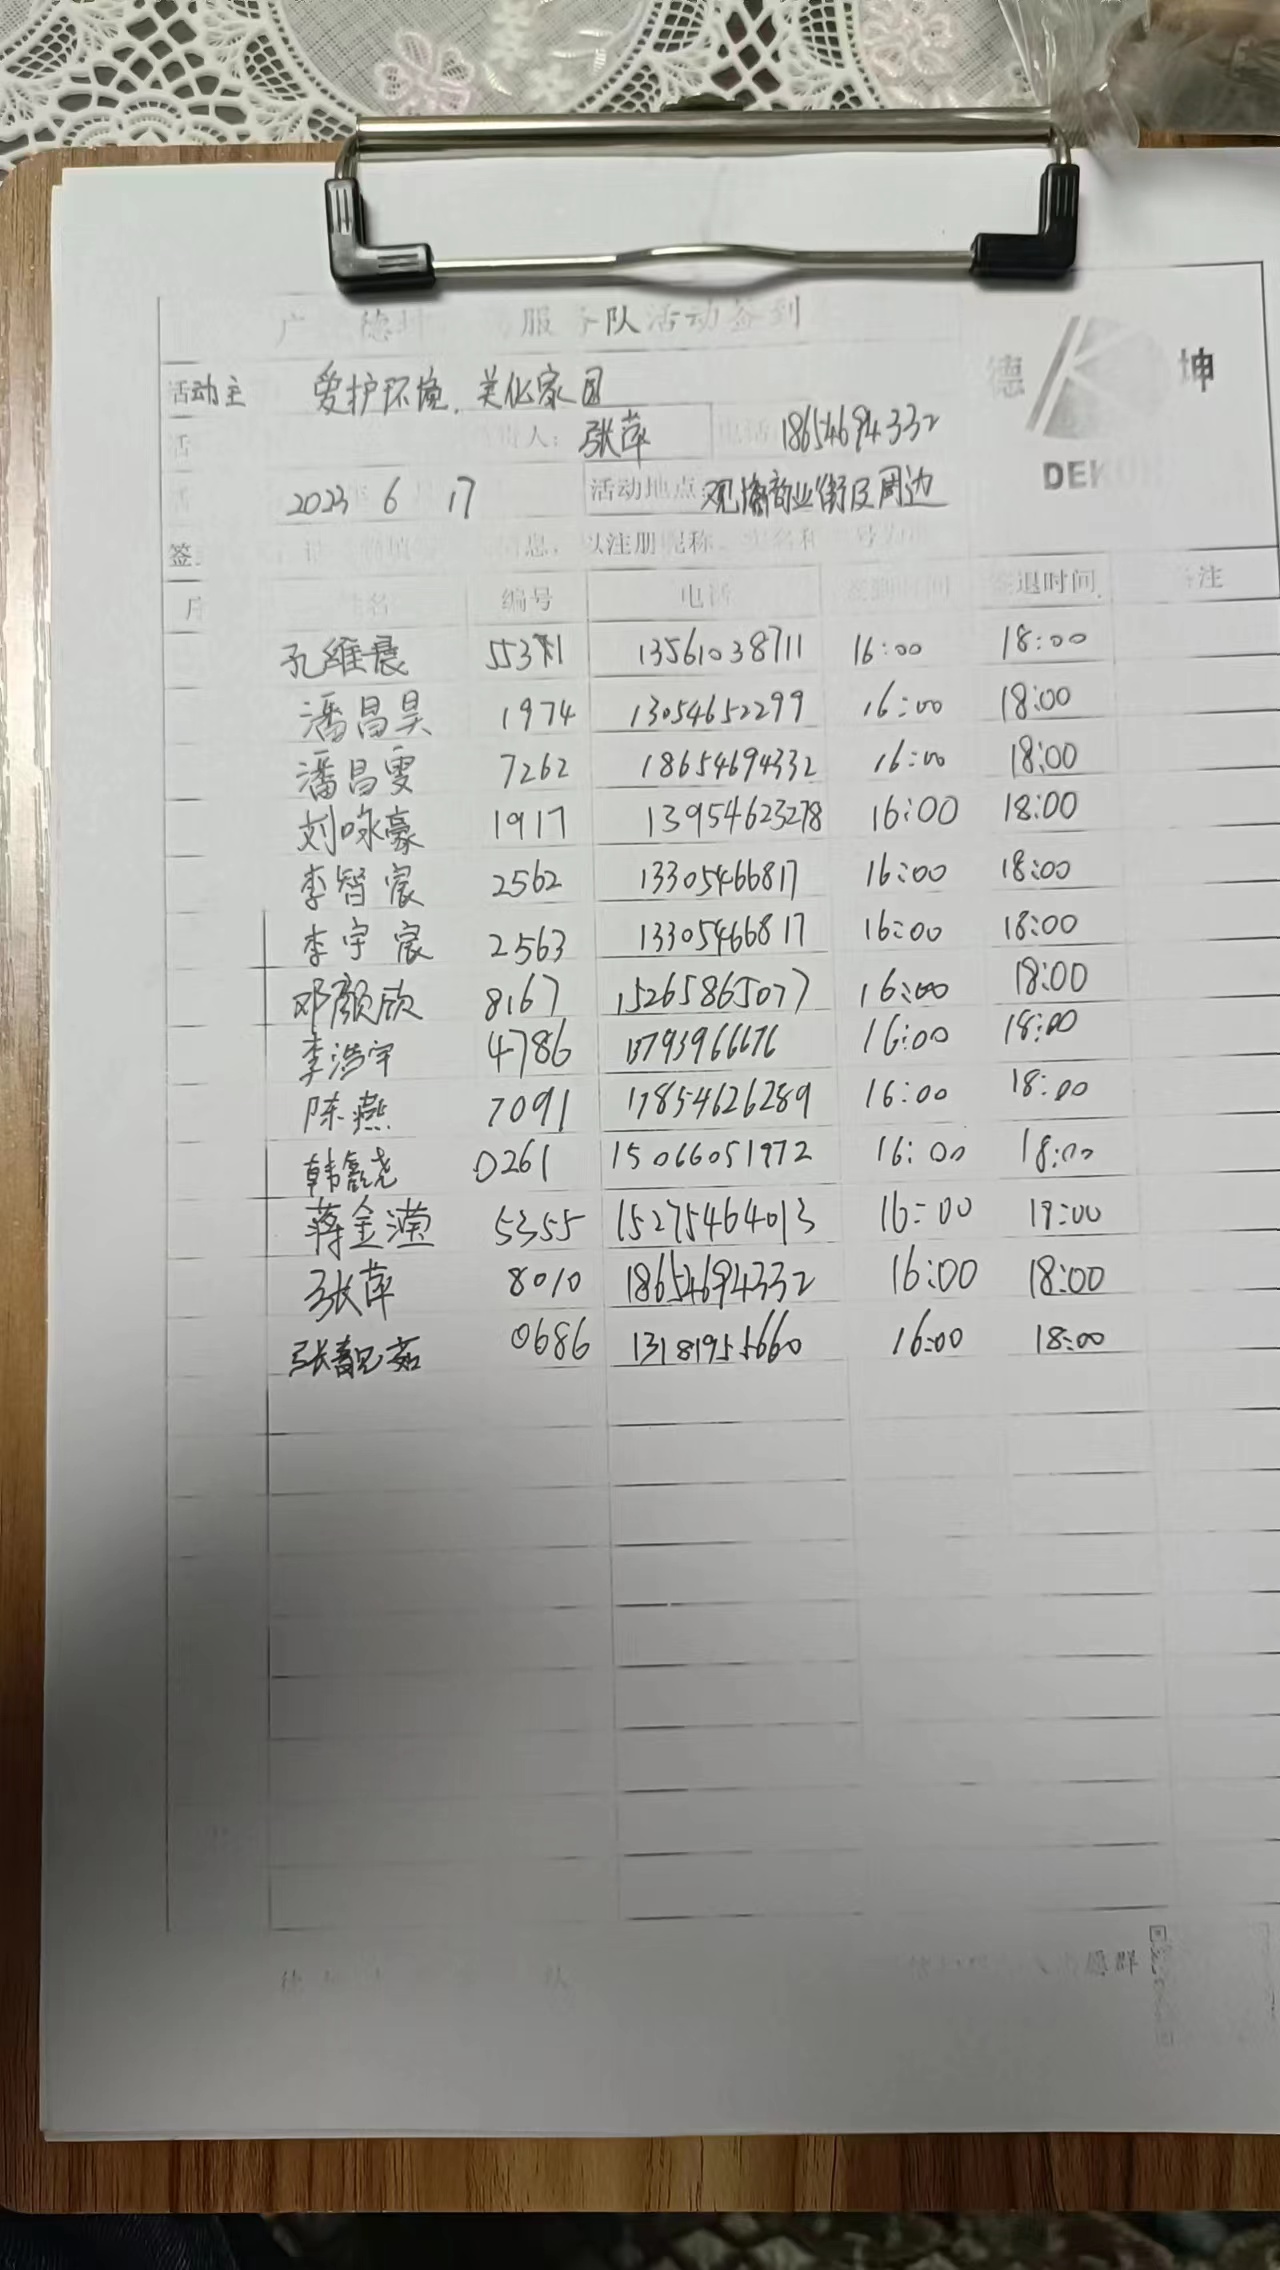 服务队活动签到
德 坤
DEK
活动主 爱护环境、美化家园
责人：张萍 电话 18654694332
2023 6 17 活动地点：观澜商业街及周边
息，以注册昵称、实名和
编号 电话 签到时间 签退时间 备注
孔维晨 13561038711 16:00 18:00
潘昌昊 1974 13054652299 16:00 18:00
潘昌雯 7262 18654694332 16:00 18:00
刘咏豪 1917 13954623278 16:00 18:00
李智宸 2562 13305466817 16:00 18:00
李宇宸 2563 13305466817 16:00 18:00
邓颜欣 8167 15265865077 16:00 18:00
李浩宇 4786 13793966676 16:00 18:00
陈燕 7091 17854626289 16:00 18:00
韩鑫尧 0261 15066051972 16:00 18:00
蒋金滢 5355 15275464013 16:00 18:00
张萍 8010 18654694332 16:00 18:00
张靓茹 0686 13181955660 16:00 18:00